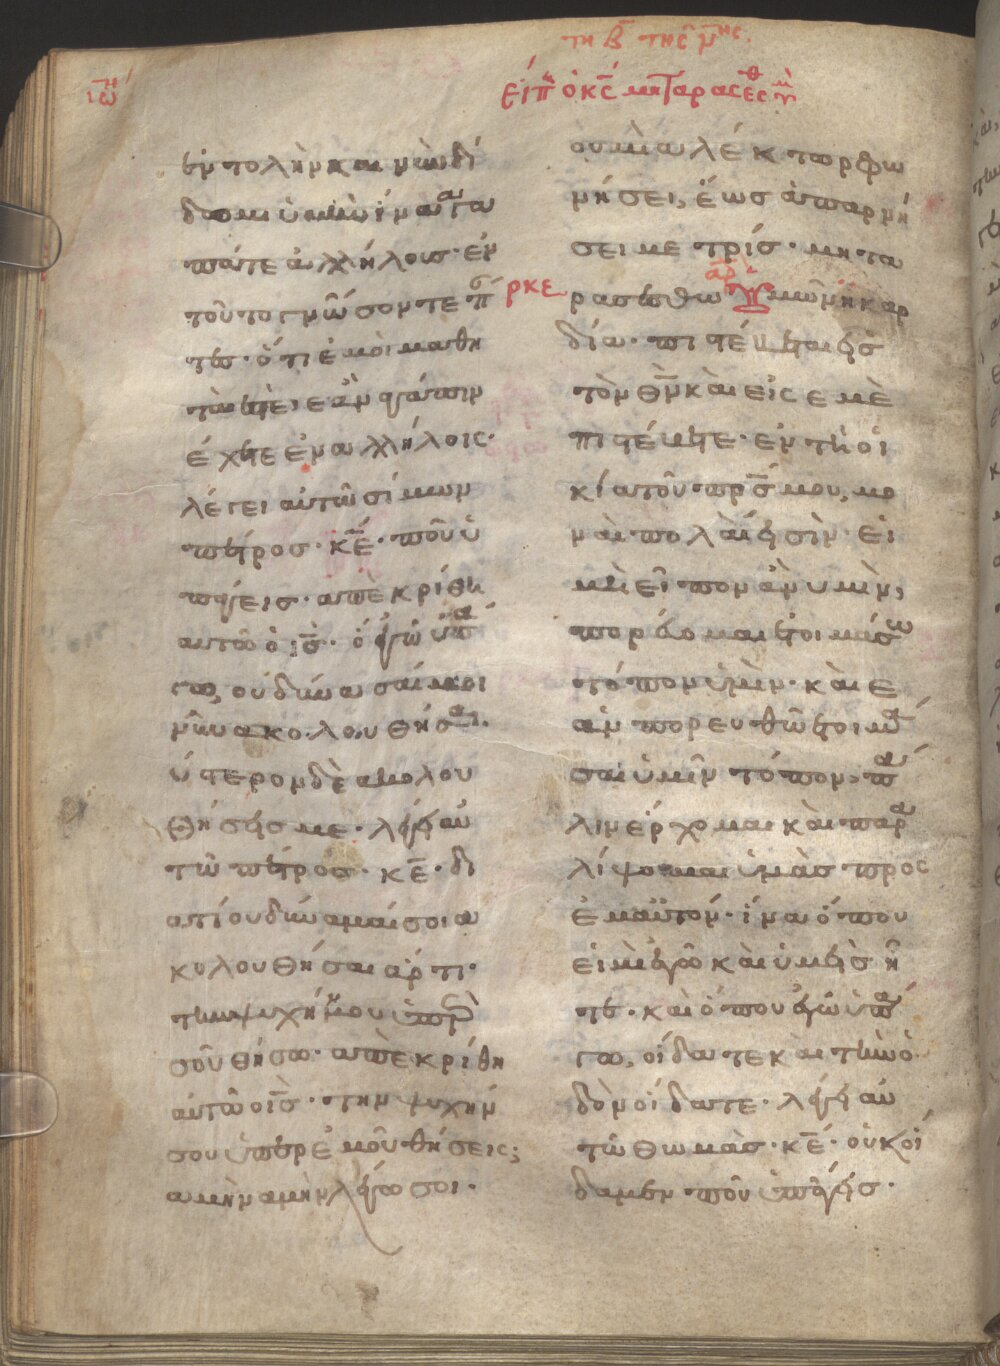 τη β της μης.
ιω
εἰπ ὁ κς μη ταρασεσθ
ἐντολὴν καινὴν δί
δωμι ὑμῖν ἵνα ἀγα
πᾶτε ἀλλήλους· ἐν
τούτο γνώσονται πά
τες· ὅτι ἐμοὶ μαθη
ταί ἐστε· ἐὰν ἀγάπην
ἔχητε ἐν ἀλλήλοις·
λέγει αὐτῶ σίμων
πέτρος· κε· ποῦ ὑ
πάγεις· ἀπεκρίθη
αὐτῶ ὁ ις· ὅπου ἐγὼ ὑπά
γω, οὐ δύνασαί μοι
νῦν ἀκολουθῆσαι·
ὕστερον δὲ ἀκολου
θήσεις με· λέγει αὐ
τῶ πέτρος· κε· δι
ατί οὐ δύναμαί σοι ἀ
κολουθῆσαι ἄρτι·
τὴν ψυχήν μου ὑπὲρ
σοῦ θήσω· ἀπεκρίθη
αὐτῶ ὁ ις· τὴν ψυχήν
σου ὑπὲρ ἐμοῦ θήσεις;
ἀμὴν ἀμὴν λέγω σοι·
οὐ μὴ ἀλέκτωρ φω
νήσει, ἕως ἀπαρνή
σει με τρίς· μη τα
ρκε ρασέσθω ὑμῶν ἡ καρ
δία· πιστεύεται εἰς
τὸν θν καὶ εἰς ἐμὲ
πιστεύετε· ἐν τῆ οἰ
κία τοῦ πρς μου, μο
ναὶ πολλαί εἰσὶν· εἰ
μὴ εἶπον ἂν ὑμὶν,
πορεύομαι ἑτοιμάσω
τόπον ὑμὶν· καὶ ἐ
ὰν πορευθῶ ἑτοιμά
σαι ὑμῖν τόπον, πά
λιν ἔρχομαι καὶ παρα
λίψομαι ὑμᾶς πρὸς
ἐμαυτόν· ἵνα ὅπου
εἰμὶ ἐγὼ καὶ ὑμεῖς ἦ
τε· καὶ ὅπου ἐγὼ ὑπά
γω, οἴδατε καὶ τὴν ὁ
δὸν οἴδατε· λέγει αὐ
τῶ θωμᾶς· κε· οὐκ οἴ
δαμεν ποῦ ὑπάγεις·